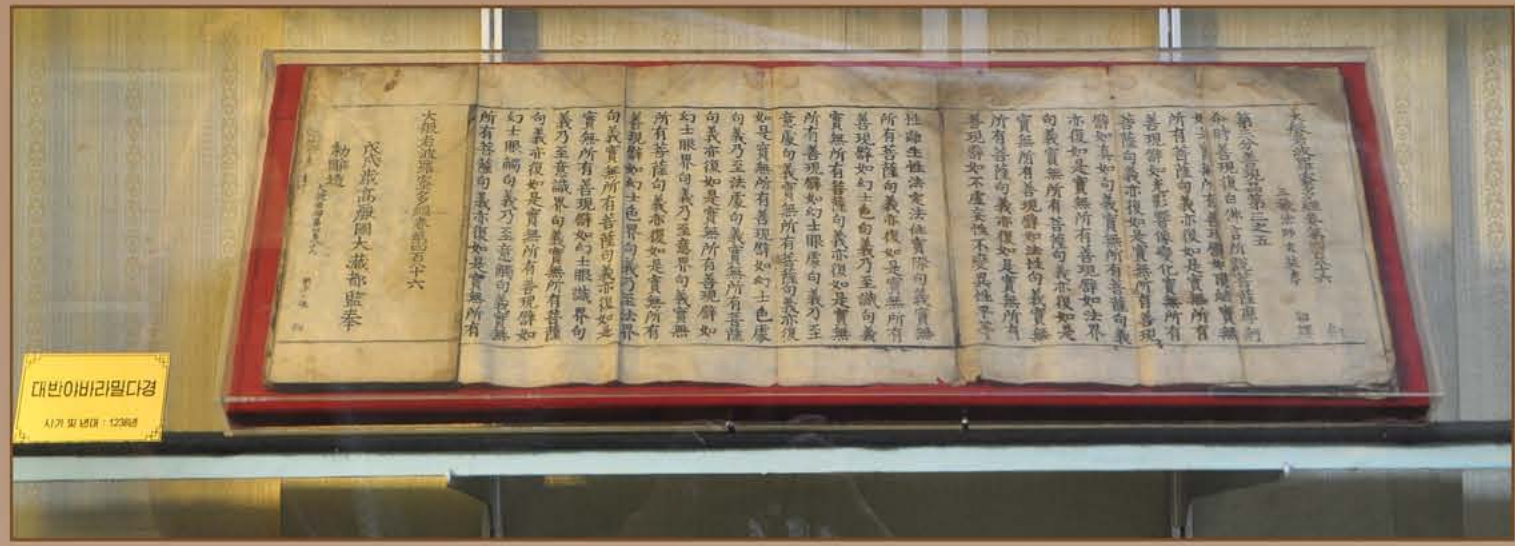 大般若波羅蜜多經卷第四百八十六
三藏法師玄奘奉 詔譯
第三分善現品第三之五
尒時善現復白佛言所說菩薩
如是實無所有善現譬如實無
所有菩薩句義亦復如是實無所有
善現譬如光影響像變化實無所有
菩薩句義亦復如是實無所有善現
譬如真如句義實無所有菩薩句義
亦復如是實無所有善現譬如法界
句義實無所有菩薩句義亦復如是
實無所有善現譬如法性句義實無
所有菩薩句義亦復如是實無所有
善現譬如不虛妄性不變異性平等
性離生性法定法住實際句義實無
所有菩薩句義亦復如是實無所有
善現譬如幻士色句義乃至識句義
實無所有菩薩句義亦復如是實無
所有善現譬如幻士眼處句義乃至
意處句義實無所有菩薩句義亦復
如是實無所有善現譬如幻士色處
句義乃至法處句義實無所有菩薩
句義亦復如是實無所有善現譬如
幻士眼界句義乃至意界句義實無
所有菩薩句義亦復如是實無所有
善現譬如幻士色界句義乃至法界
句義實無所有菩薩句義亦復如是
實無所有善現譬如幻士眼識界句
義乃至意識界句義實無所有菩薩
句義亦復如是實無所有善現譬如
幻士眼觸句義乃至意觸句義實無
所有菩薩句義亦復如是實無所有
大般若波羅蜜多經卷第四百八十六
戊戌歲高麗國大藏都監奉
勅雕造
대반야바라밀다경
시기 및 년대 : 1238년